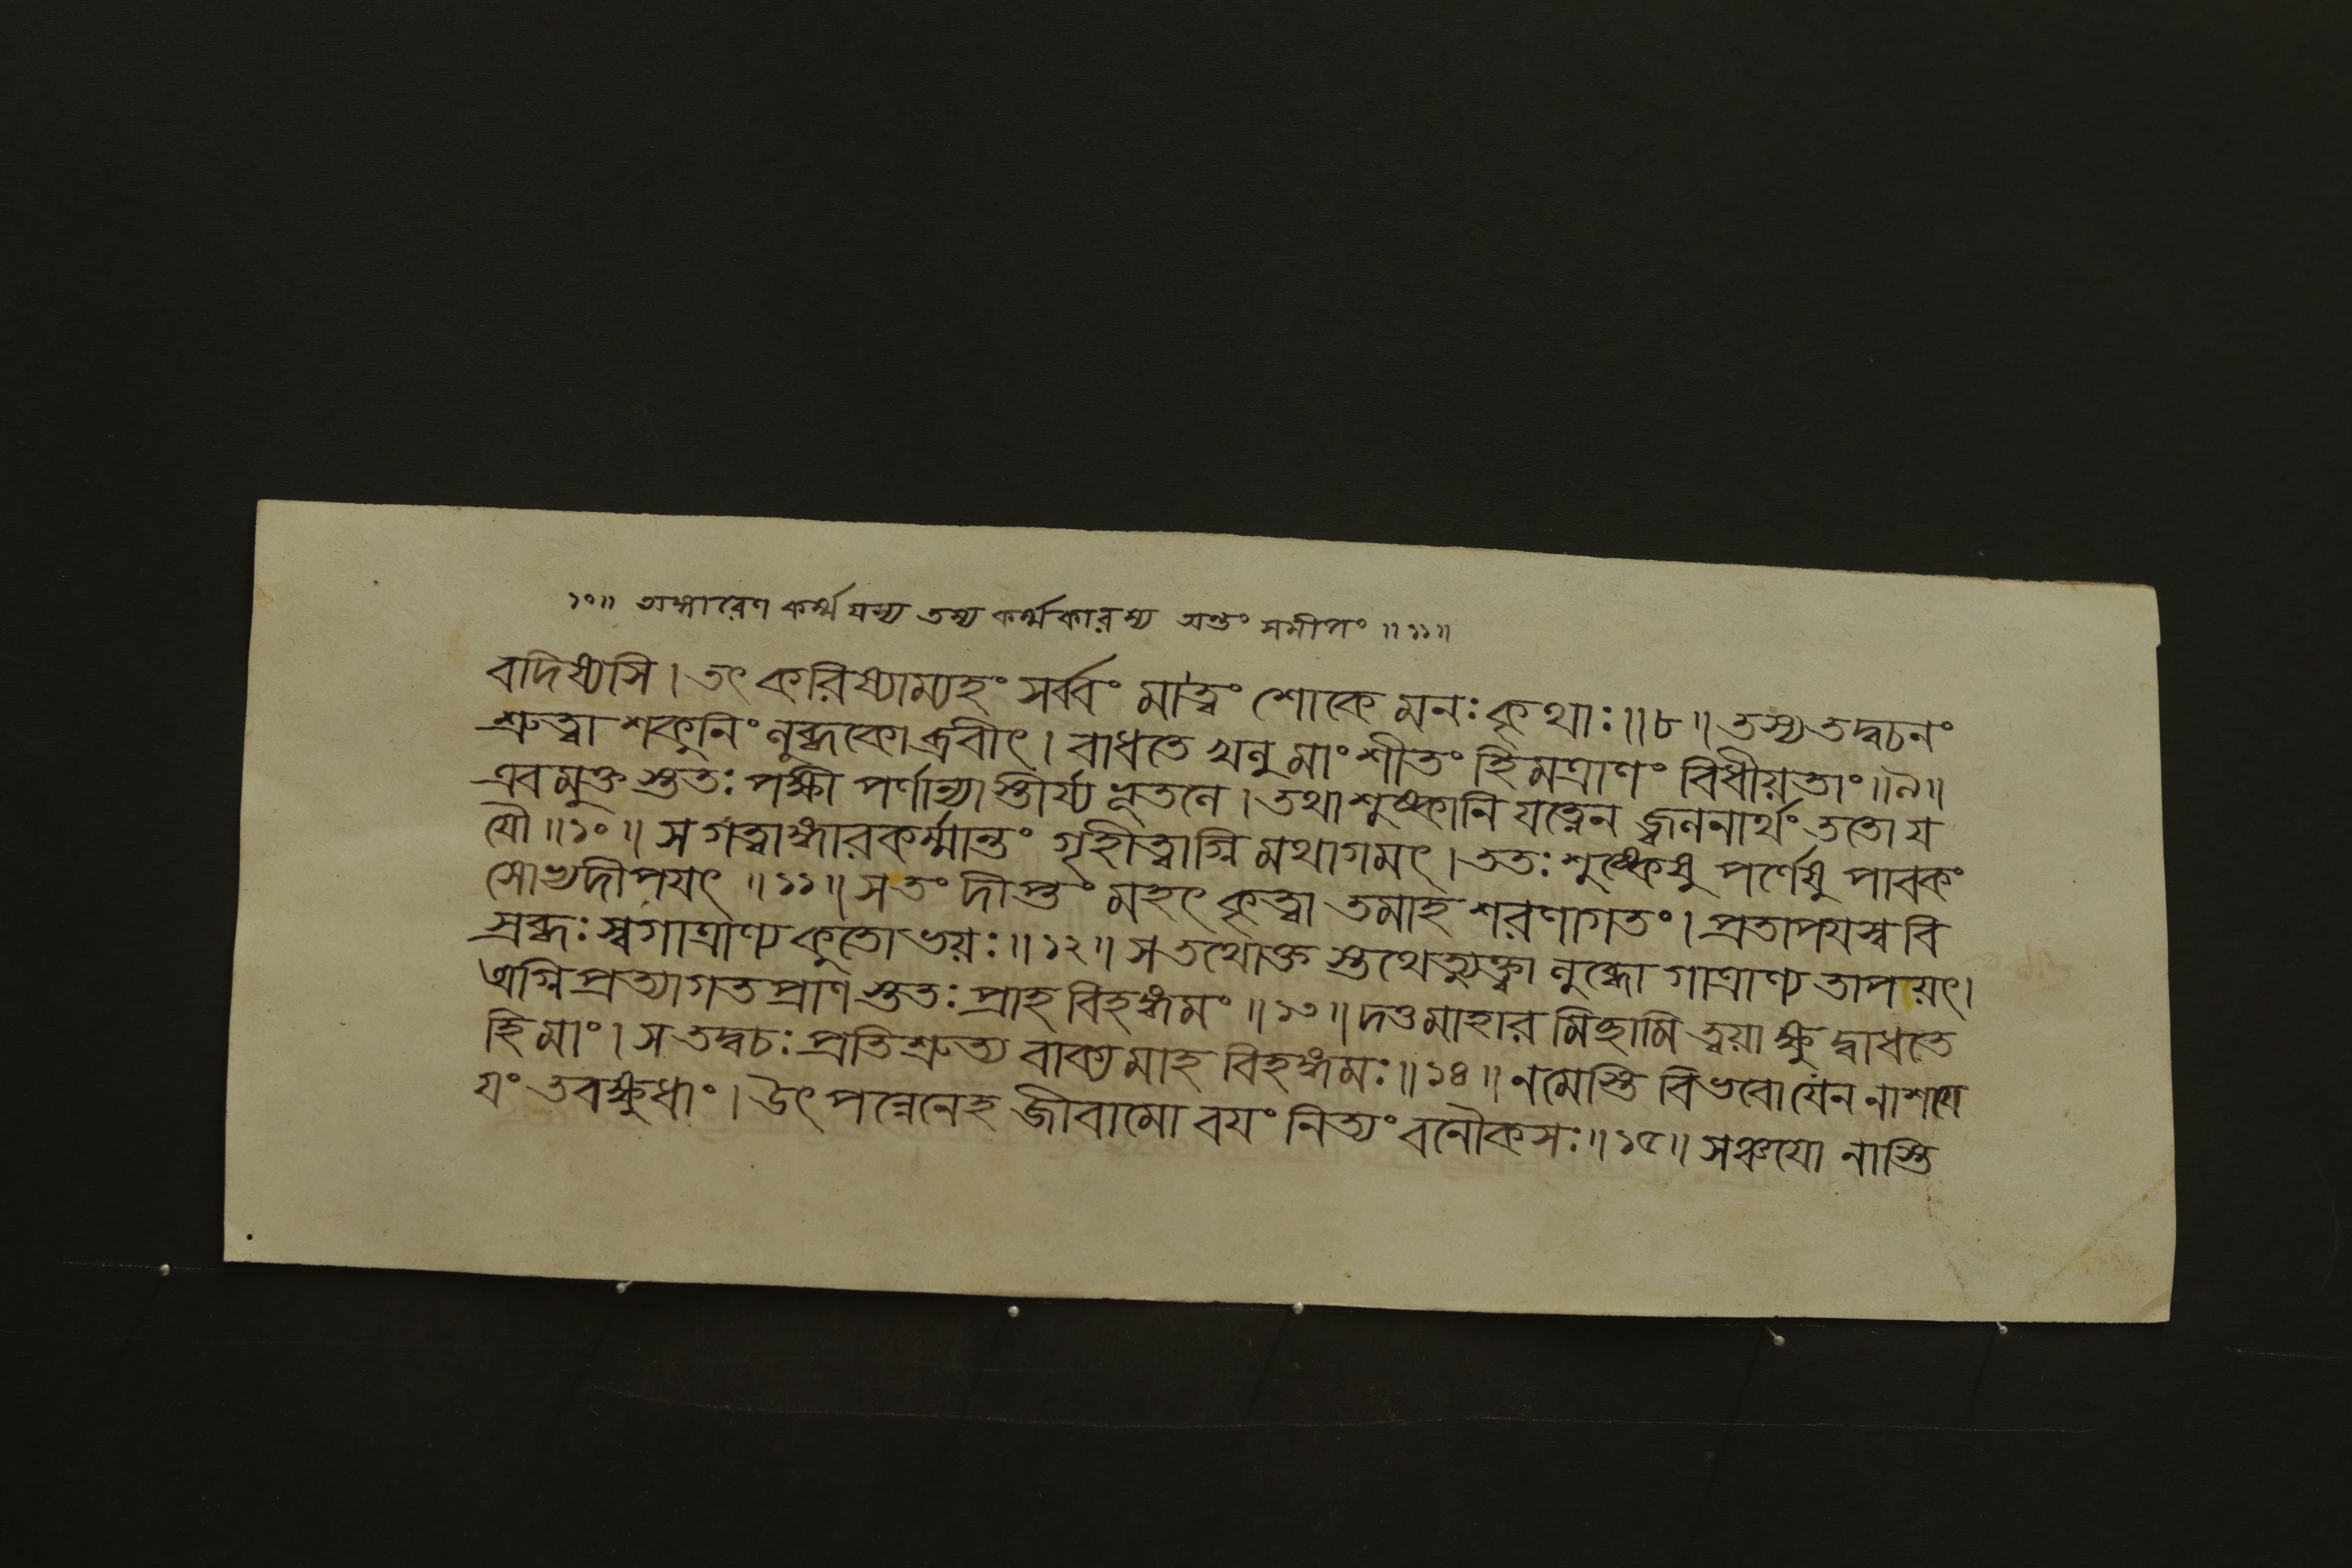 ১০॥ অঙ্গারেণ কর্ম্ম যস্য তস্য কর্ম্মকারস্য অন্তং সমীপং ॥১১॥
বদিষ্যসি। তৎ করিষ্যাম্যহং সর্ব্বং মাত্বং শোকে মনঃ কৃথাঃ॥৮॥ তস্য তদ্বচনং
শ্রুত্বা শকুনিং লুব্ধকোব্রবীৎ। বাধতে খলু মাং শীতং হিমত্রাণং বিধীয়তাং॥৯॥
এবমুক্ত স্ততঃ পক্ষী পর্ণান্যাস্তীর্য্য ভূতলে। তথা শুষ্কানি যত্নেন জ্বলনার্থং ততো য
যৌ॥১০॥ স গত্বাঙ্গারকর্ম্মান্তং গৃহীত্বাগ্নি মথাগমৎ। ততঃ শুষ্কেষু পর্ণেষু পাবকং
সোভ্যদীপযৎ॥১১॥ স তং দীপ্তং মহৎ কৃত্বা তমাহ শরণাগতং। প্রতাপযস্ব বি
স্রব্ধঃ স্বগাত্রাণ্য কুতোভয়ঃ॥১২॥ স তথোক্ত স্তথেত্যুক্ত্বা লুব্ধো গাত্রাণ্য তাপয়ৎ।
অগ্নিপ্রত্যাগতপ্রাণ স্ততঃ প্রাহ বিহঙ্গমং॥১৩॥ দত্তমাহার মিচ্ছামি ত্বয়া ক্ষু দ্বাধতে
হি মাং। স তদ্বচঃ প্রতিশ্রুত্য বাক্যমাহ বিহঙ্গমঃ॥১৪॥ ন মেস্তি বিভবো যেন নাশযে
যং তবক্ষুধাং। উৎপন্নেনেহ জীবামো বযং নিত্যং বনৌকসঃ॥১৫॥ সঞ্চযো নাস্তি